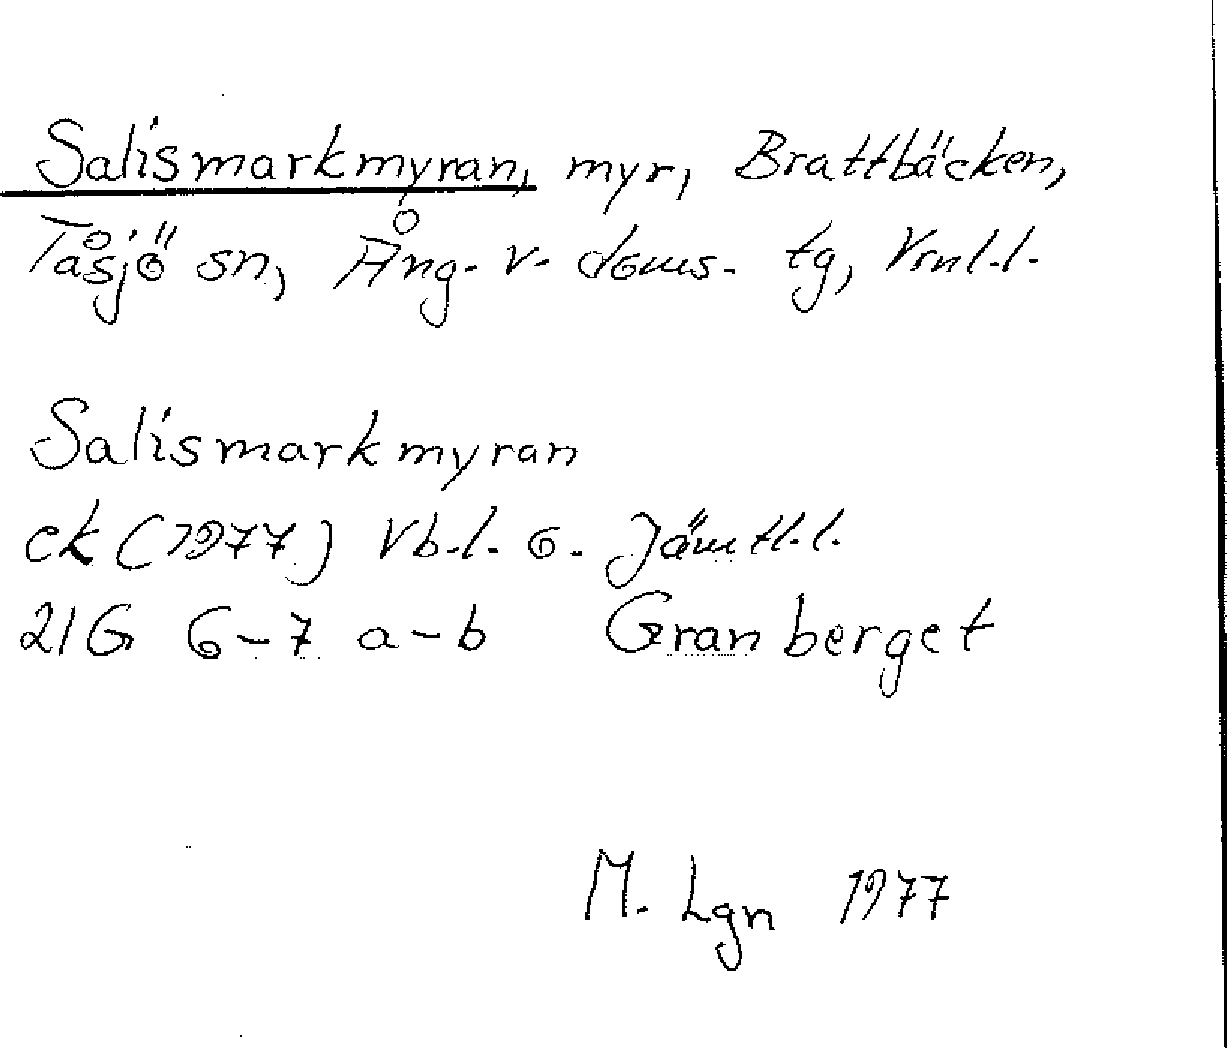 Salismarkmyran, myr, Brattbäcken,
Tåsjö sn, Ång. v. doms. tg, Vrnl.l.
Salismarkmyran
ek (1977) Vb.l. o. Jämtl.l.
21G 6-7 a-b Granberget
M. Lgn 1977